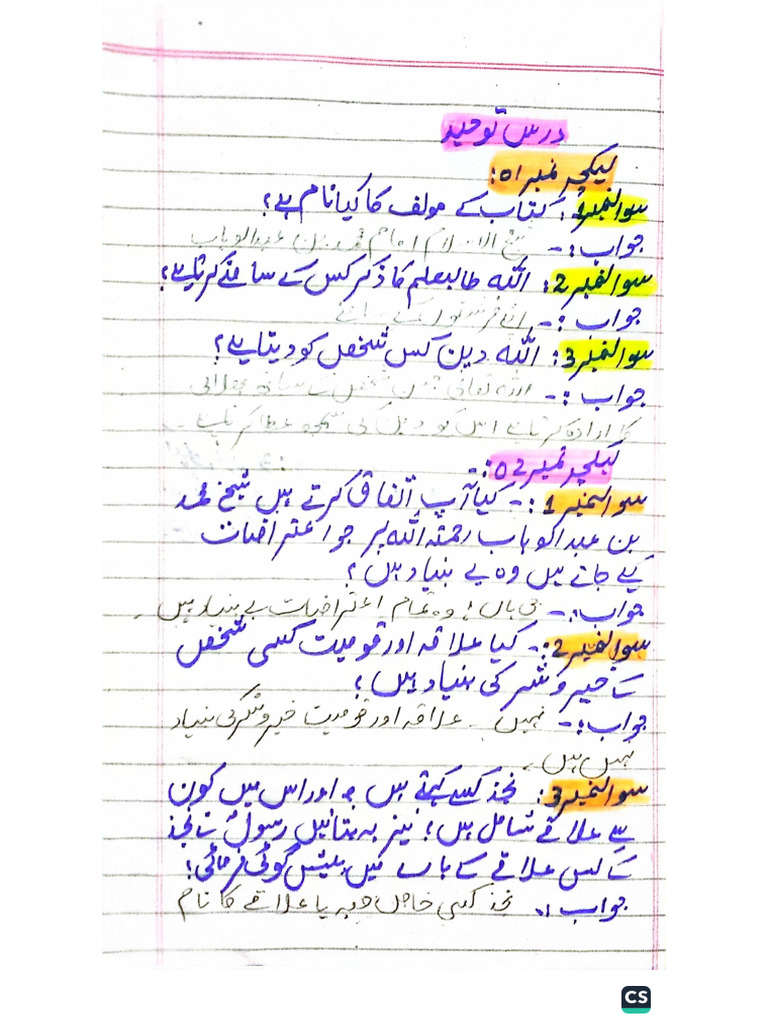 درس توحید
لیکچر نمبر 01:
سوال نمبر 1: کتاب کے مولف کا کیا نام ہے؟
جواب :- شیخ الاسلام امام محمد بن عبدالوہاب
سوال نمبر 2: اللہ طالبعلم کا ذکر کس کے سامنے کرتا ہے؟
جواب :- اپنے فرشتوں کے سامنے
سوال نمبر 3: اللہ دین کس شخص کو دیتا ہے؟
جواب :- اللہ تعالی جس شخص کے ساتھ بھلائی
کا ارادہ کرتا ہے اس کو دین کی سمجھ عطا کرتا ہے ۔
لیکچر نمبر 02:-
سوال نمبر 1:- کیا آپ اتفاق کرتے ہیں شیخ محمد
بن عبدالوہاب رحمتہ اللہ پر جو اعتراضات
کیے جاتے ہیں وہ بے بنیاد ہیں؟
جواب:- جی ہاں! وہ تمام اعتراضات بے بنیاد ہیں ۔
سوال نمبر 2:- کیا علاقہ اور قومیت کسی شخص
کے خیر و شر کی بنیاد ہیں؟
جواب:- نہیں ۔ علاقہ اور قومیت خیر و شر کی بنیاد
نہیں ہیں ۔
سوال نمبر 3: نجد کسے کہتے ہیں ؟ اور اس میں کون
سے علاقے شامل ہیں؟ نیز یہ بتائیں رسولؐ نے نجد
کے کس علاقے کے باب میں پیشن گوئی فرمائی؟
جواب :- نجد کسی خاص جگہ یا علاقے کا نام
CS